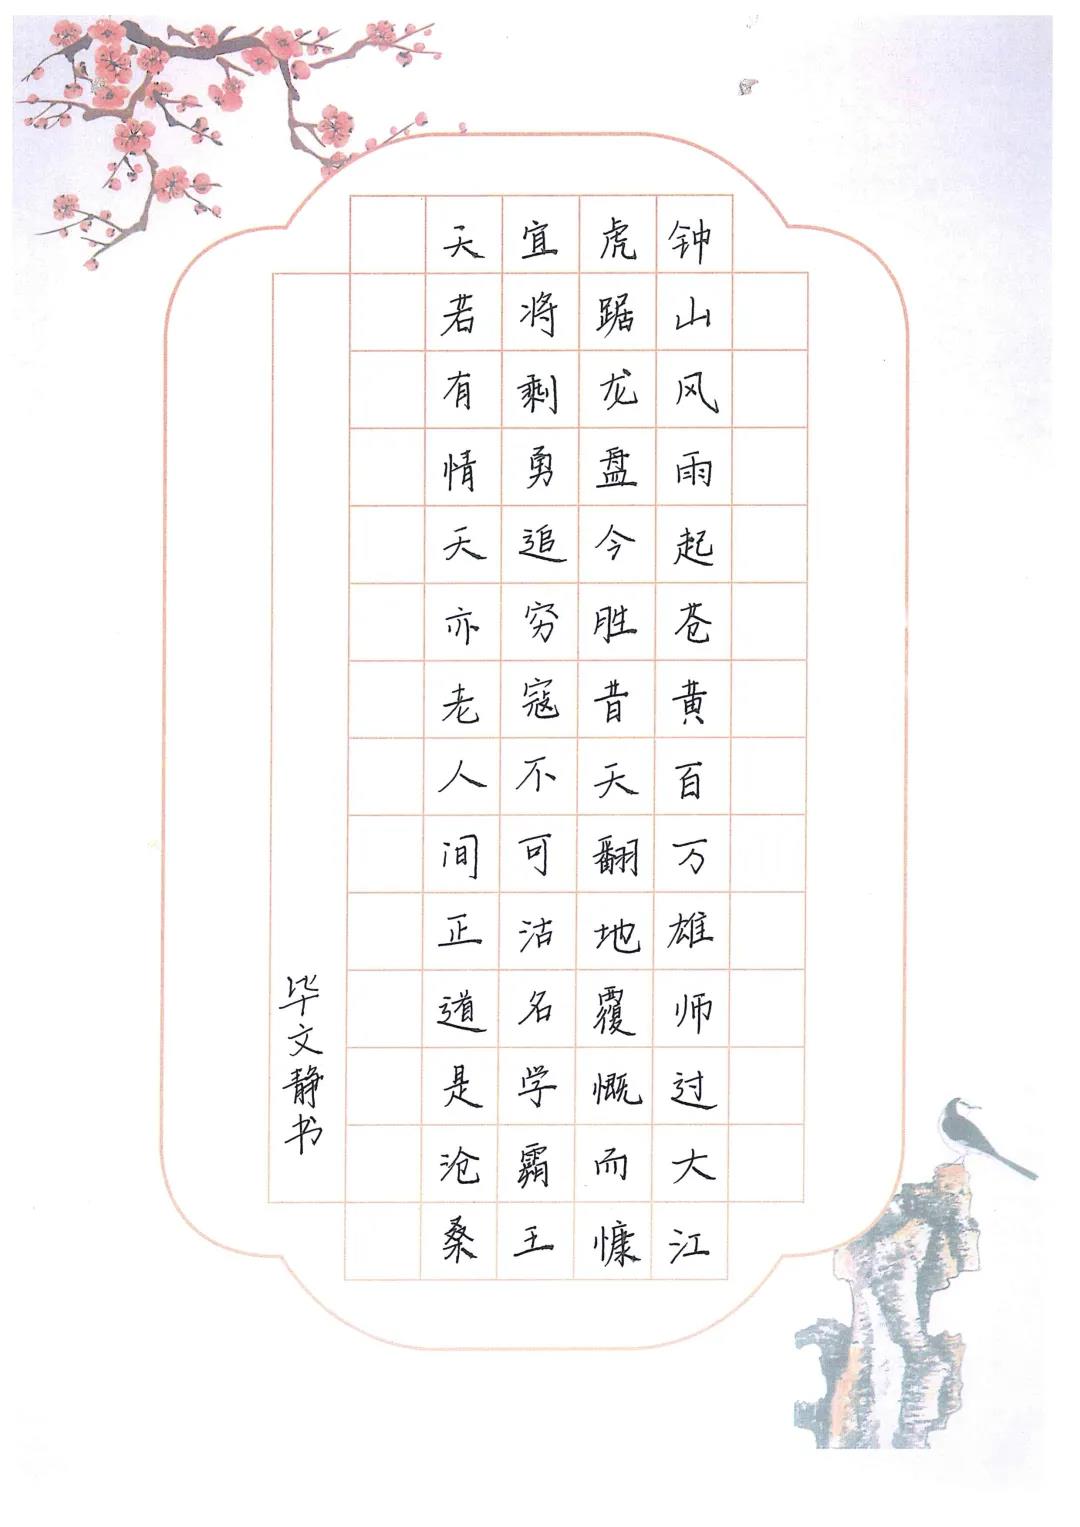 钟山风雨起苍黄百万雄师过大江
虎踞龙盘今胜昔天翻地覆慨而慷
宜将剩勇追穷寇不可沽名学霸王
天若有情天亦老人间正道是沧桑
毕文静书